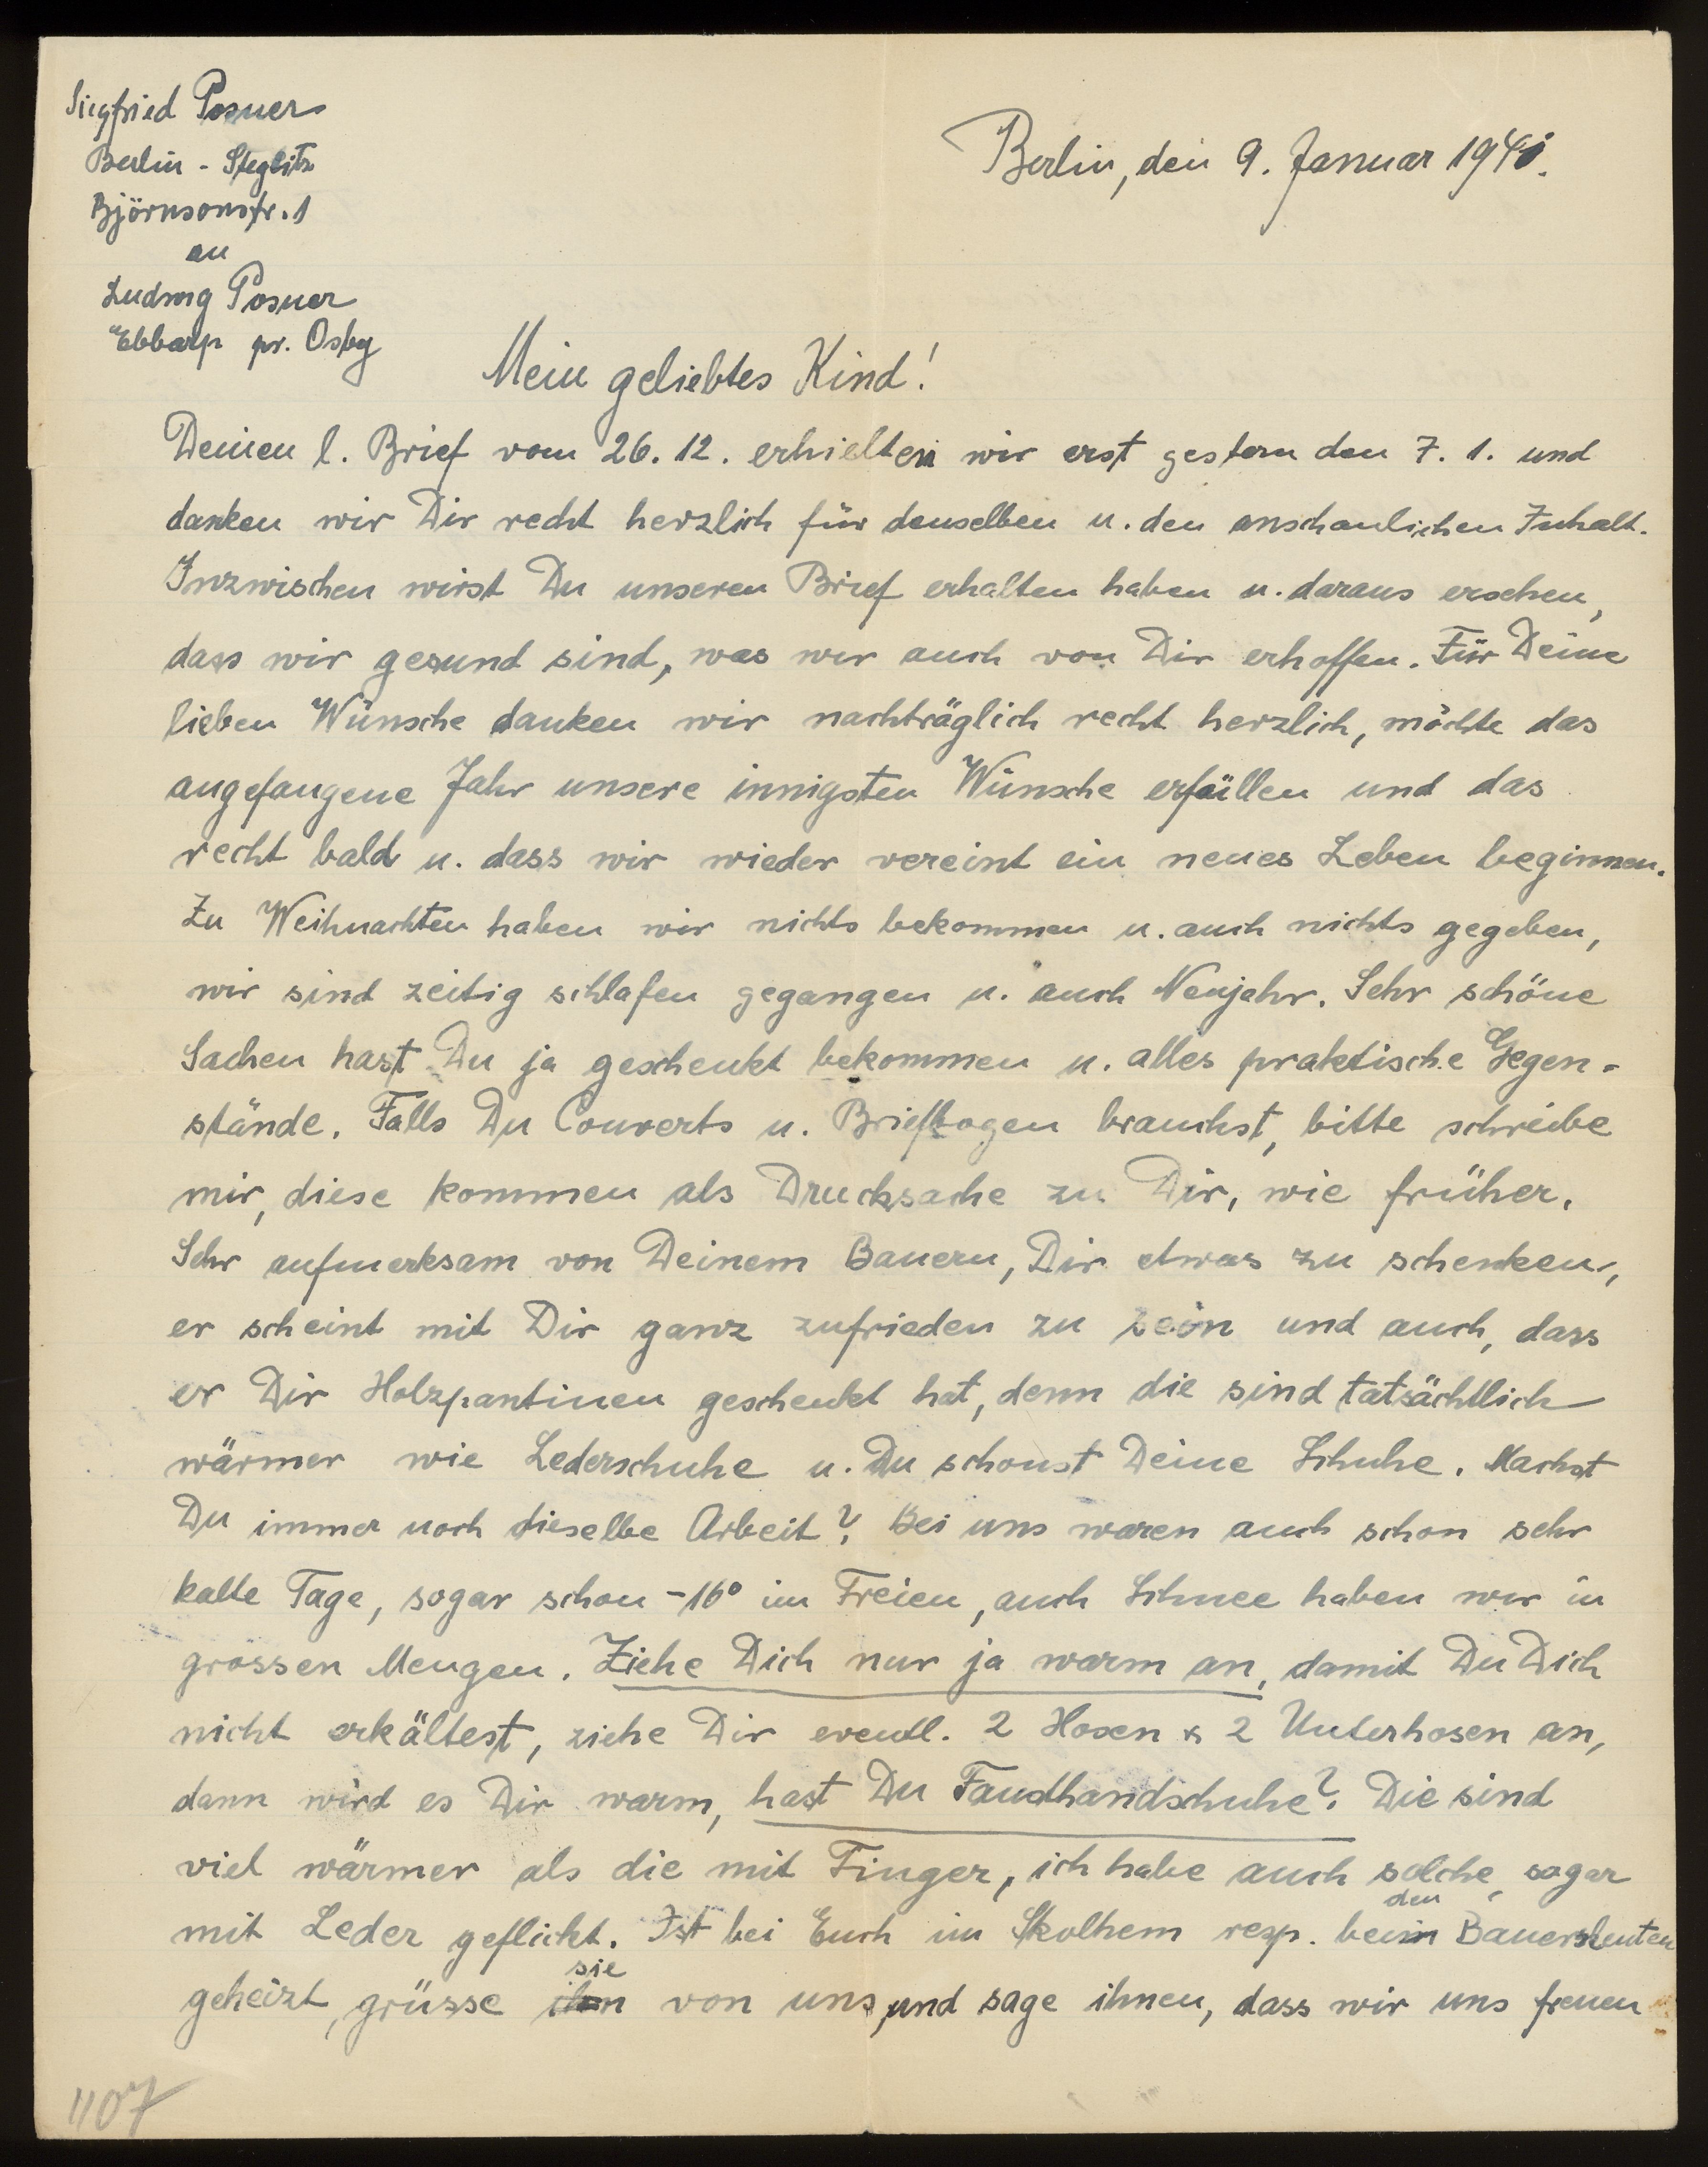 Siegfried Posner
Berlin - Steglitz
Björnsonstr. 1
an
Ludwig Posner
Ebbarp pr. Osby
Berlin, den 9. Januar 1941.
Mein geliebtes Kind!
Deinen l. Brief vom 26. 12. erhielten wir erst gestern den 7. 1. und
danken wir Dir recht herzlich für denselben u. den anschaulichen Inhalt.
Inzwischen wirst Du unseren Brief erhalten haben u. daraus ersehen,
dass wir gesund sind, was wir auch von Dir erhoffen. Für Deine
lieben Wünsche danken wir nachträglich recht herzlich, möchte das
angefangene Jahr unsere innigsten Wünsche erfüllen und das
recht bald u. dass wir wieder vereint ein neues Leben beginnen.
Zu Weihnachten haben wir nichts bekommen u. auch nichts gegeben,
wir sind zeitig schlafen gegangen u. auch Neujahr. Sehr schöne
Sachen hast Du ja geschenkt bekommen u. alles praktische Gegen-
stände. Falls Du Couverts u. Briefbogen brauchst, bitte schreibe
mir, diese kommen als Drucksache zu Dir, wie früher.
Sehr aufmerksam von Deinem Bauern, Dir etwas zu schenken,
er scheint mit Dir ganz zufrieden zu sein und auch, dass
er Dir Holzpantinen geschenkt hat, denn die sind tatsächtlich
wärmer wie Lederschuhe u. Du schonst Deine Schuhe. Machst
Du immer noch dieselbe Arbeit? Bei uns waren auch schon sehr
kalte Tage, sogar schon -16° im Freien, auch Schnee haben wir in
grossen Mengen. Ziehe Dich nur ja warm an, damit Du Dich
nicht erkältest, ziehe Dir eventl. 2 Hosen & 2 Unterhosen an,
dann wird es Dir warm, hast Du Fausthandschuhe? Die sind
viel wärmer als die mit Finger, ich habe auch solche, sogar
mit Leder geflickt. Ist bei Euch im Skolhem resp. bei den Bauersleuten
geheizt, grüsse sie von uns, und sage ihnen, dass wir uns freuen
1107